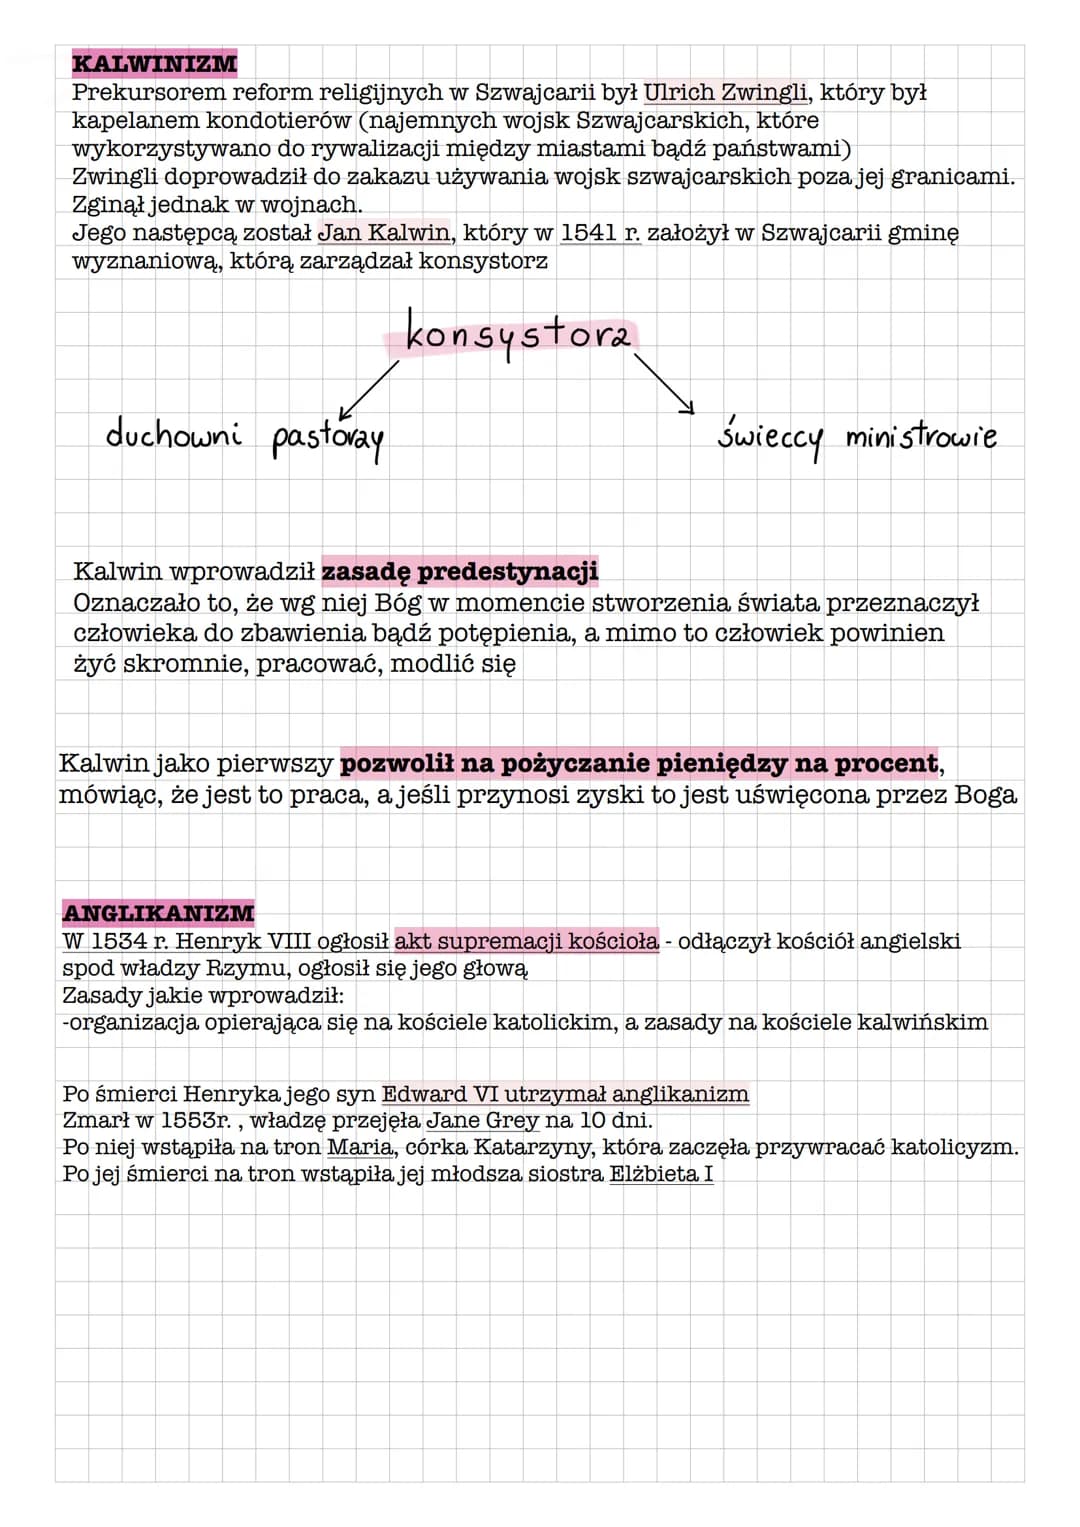 KALWINIZM
Prekursorem reform religijnych w Szwajcarii był Ulrich Zwingli, który był
kapelanem kondotierów (najemnych wojsk Szwajcarskich, które
wykorzystywano do rywalizacji między miastami bądź państwami)
Zwingli doprowadził do zakazu używania wojsk szwajcarskich poza jej granicami.
Zginął jednak w wojnach.
Jego następcą został Jan Kalwin, który w 1541 r. założył w Szwajcarii gminę
wyznaniową, którą zarządzał konsystorz
konsystorz
duchowni pastorzy
świeccy ministrowie
Kalwin wprowadził zasadę predestynacji
Oznaczało to, że wg niej Bóg w momencie stworzenia świata przeznaczył
człowieka do zbawienia bądź potępienia, a mimo to człowiek powinien
żyć skromnie, pracować, modlić się
Kalwin jako pierwszy pozwolił na pożyczanie pieniędzy na procent,
mówiąc, że jest to praca, a jeśli przynosi zyski to jest uświęcona przez Boga
ANGLIKANIZM
W 1534 r. Henryk VIII ogłosił akt supremacji kościoła - odłączył kościół angielski
spod władzy Rzymu, ogłosił się jego głową
Zasady jakie wprowadził:
-organizacja opierająca się na kościele katolickim, a zasady na kościele kalwińskim
Po śmierci Henryka jego syn Edward VI utrzymał anglikanizm
Zmarł w 1553r. , władzę przejęła Jane Grey na 10 dni.
Po niej wstąpiła na tron Maria, córka Katarzyny, która zaczęła przywracać katolicyzm.
Po jej śmierci na tron wstąpiła jej młodsza siostra Elżbieta I